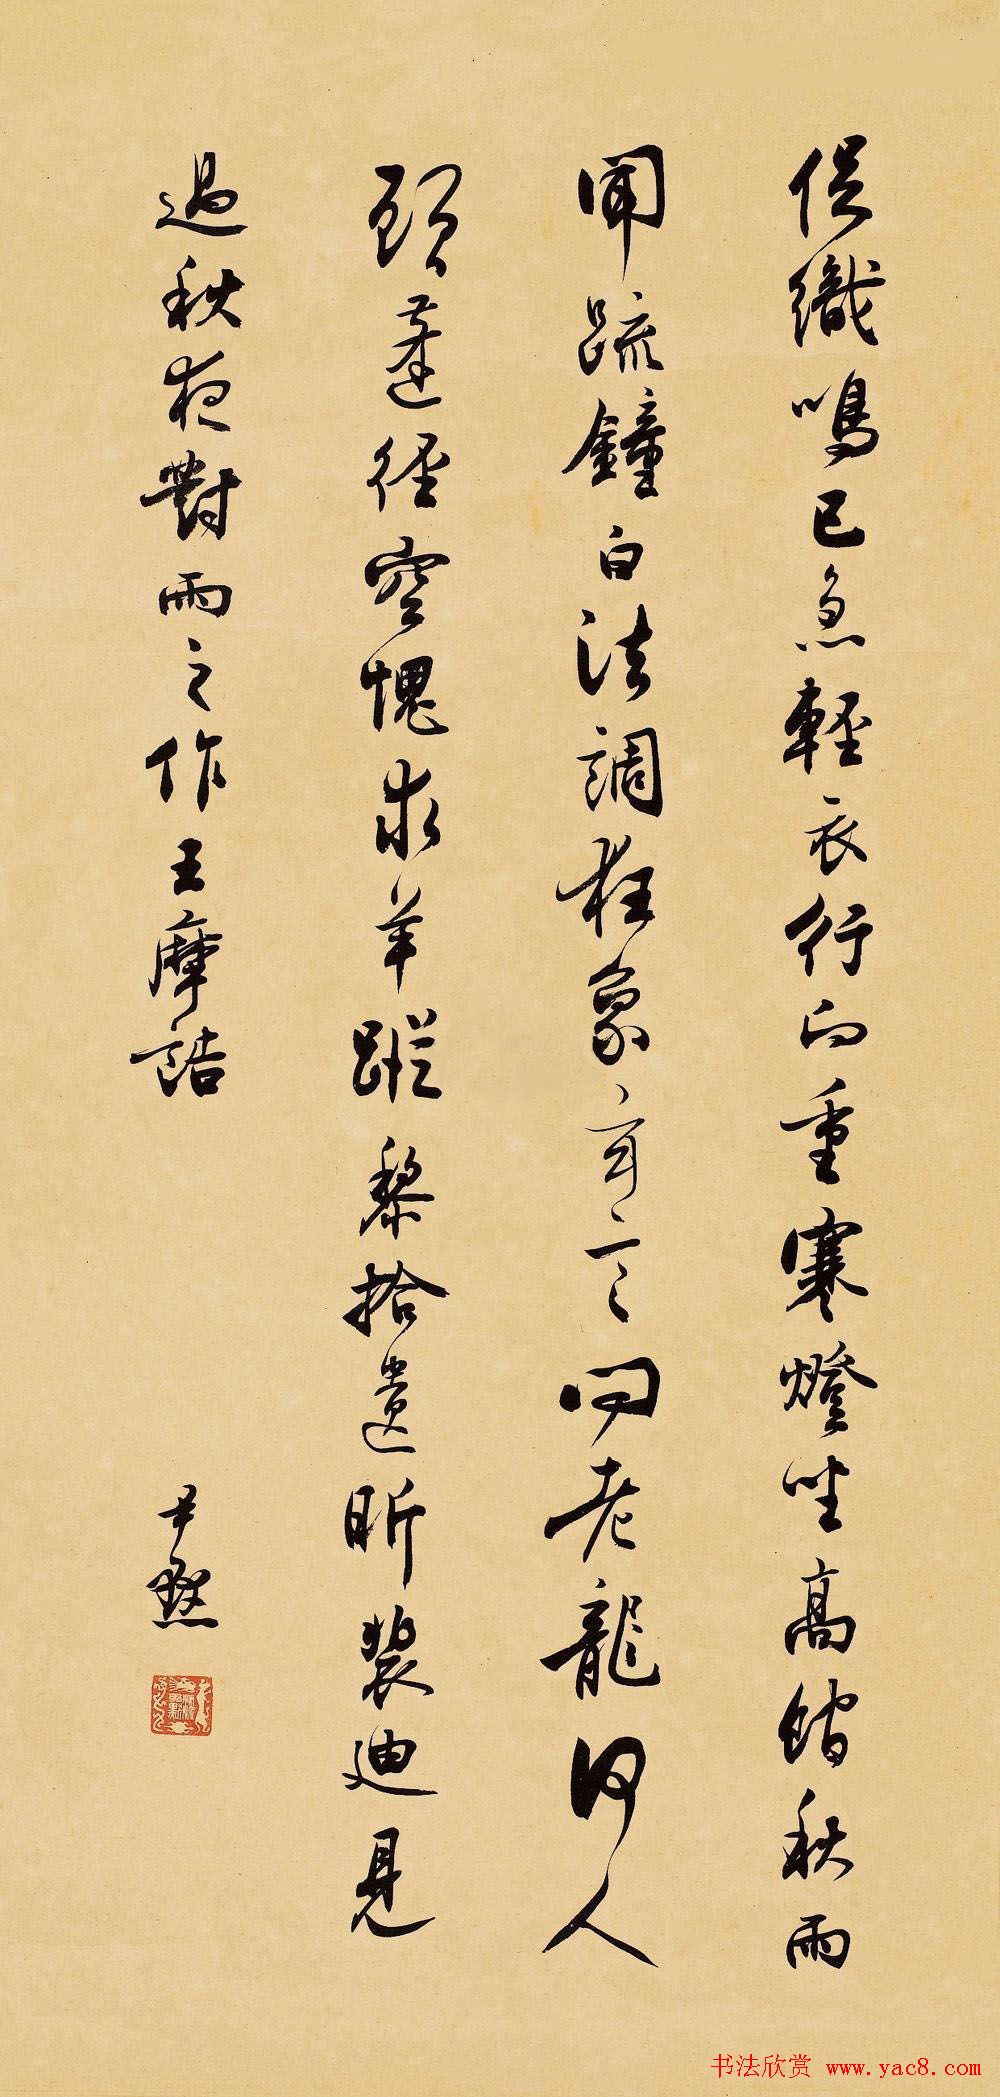 促織鳴已急輕衣行向重寒燈坐高館秋雨
聞疏鐘白法調狂象玄言問老龍何人
顧蓬徑空愧求羊蹤黎拾遺昕裴迪見
過秋夜對雨之作王摩詰
尹默
书法欣赏 www.yac8.com